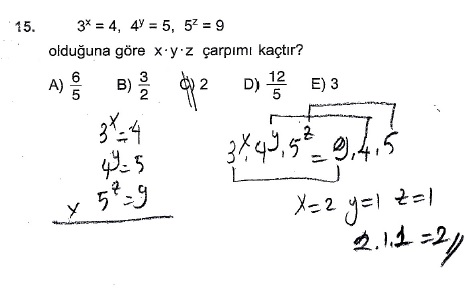 15. 3ˣ = 4, 4ʸ = 5, 5ᶻ = 9
olduğuna göre x·y·z çarpımı kaçtır?
A) 6/5 B) 3/2 C) 2 D) 12/5 E) 3
3ˣ = 4
4ʸ = 5
x 5ᶻ = 9
3ˣ. 4ʸ. 5ᶻ = 9. 4. 5
x=2 y=1 z=1
2.1.1 = 2